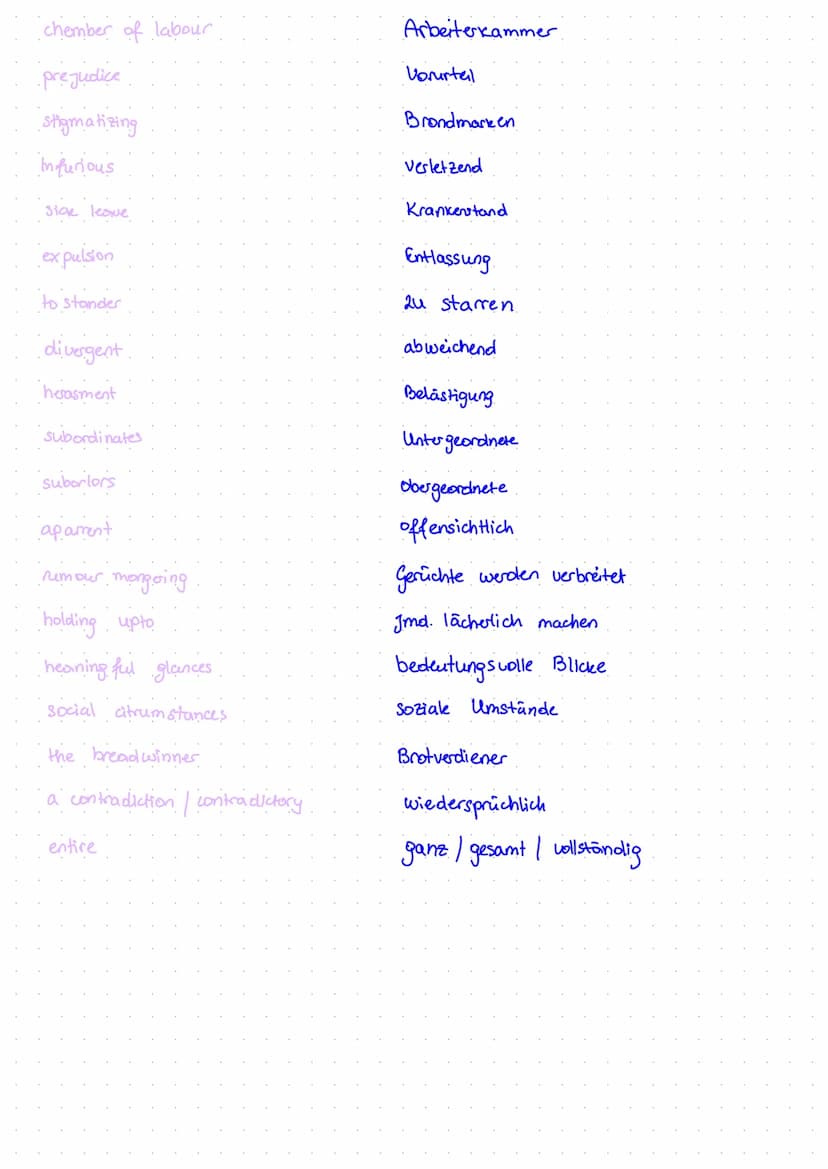 chember of labour Arbeiterkammer
prejudice Vorurteil
stigmatizing Brandmarken
Infurious verletzend
sick leave Krankenstand
expulsion Entlassung
to stander zu starren
divergent abweichend
herasment Belästigung
subordinates Untergeordnete
suberiors Obergeordnete
aparrent offensichtlich
rumour mongoing Gerüchte werden verbreitet
holding upto Jmd. lächerlich machen
heaningful glances bedeutungsvolle Blicke
social citrumstances soziale Umstände
the breadwinner Brotverdiener
a contradiction / contradictory wiedersprüchlich
entire ganz / gesamt / vollständig